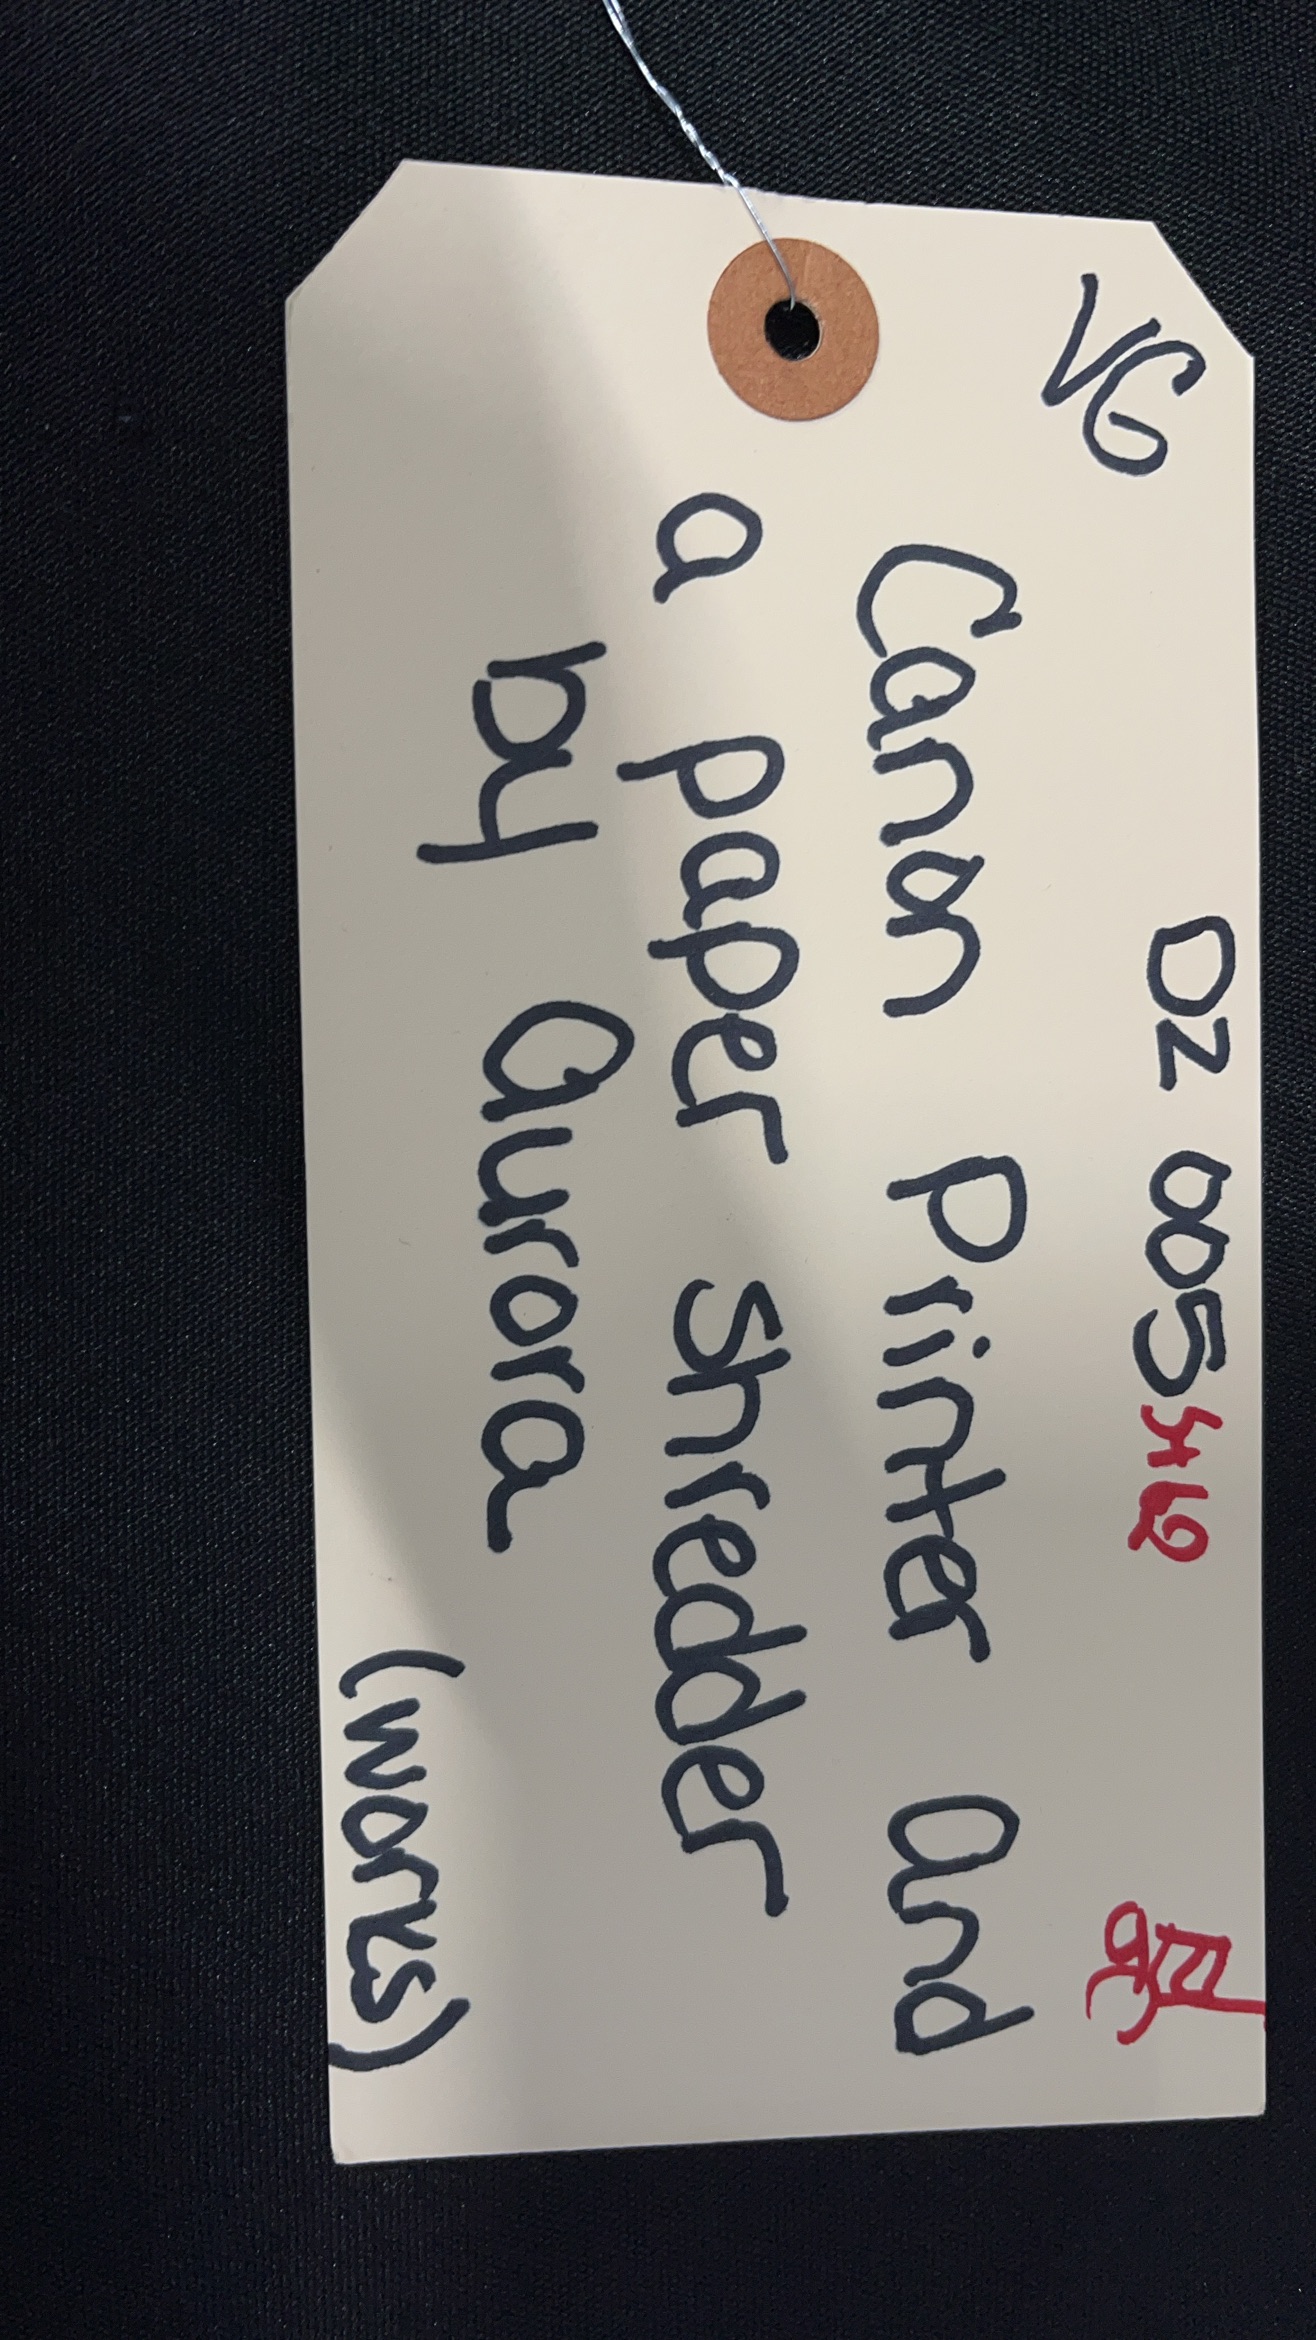 VG
DZ 005
Canon Printer and
a paper Shredder
by Aurora
(works)